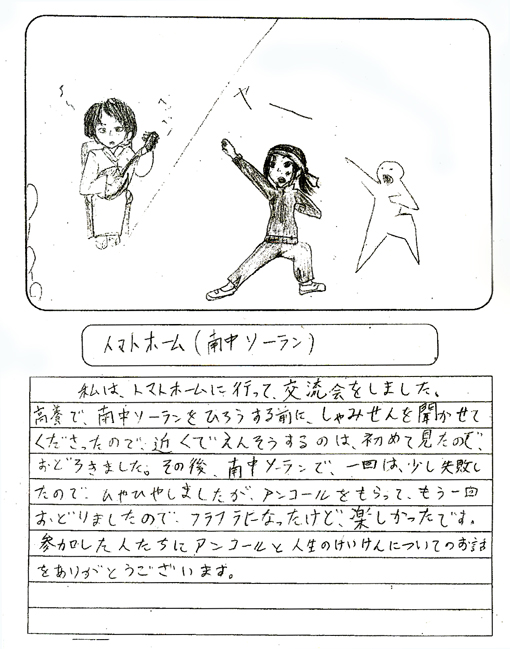 ヤー
トマトホーム(南中ソーラン)
私は、トマトホームに行って、交流会をしました。
高養で、南中ソーランをひろうする前に、しゃみせんを聞かせて
くださったので、近くでえんそうするのは、初めて見たので、
おどろきました。その後、南中ソーランで、一回は、少し失敗し
たので、ひやひやしましたが、アンコールをもらって、もう一回
おどりましたので、フラフラになったけど、楽しかったです。
参加した人たちにアンコールと人生のけいけんについてのお話
をありがとうございます。